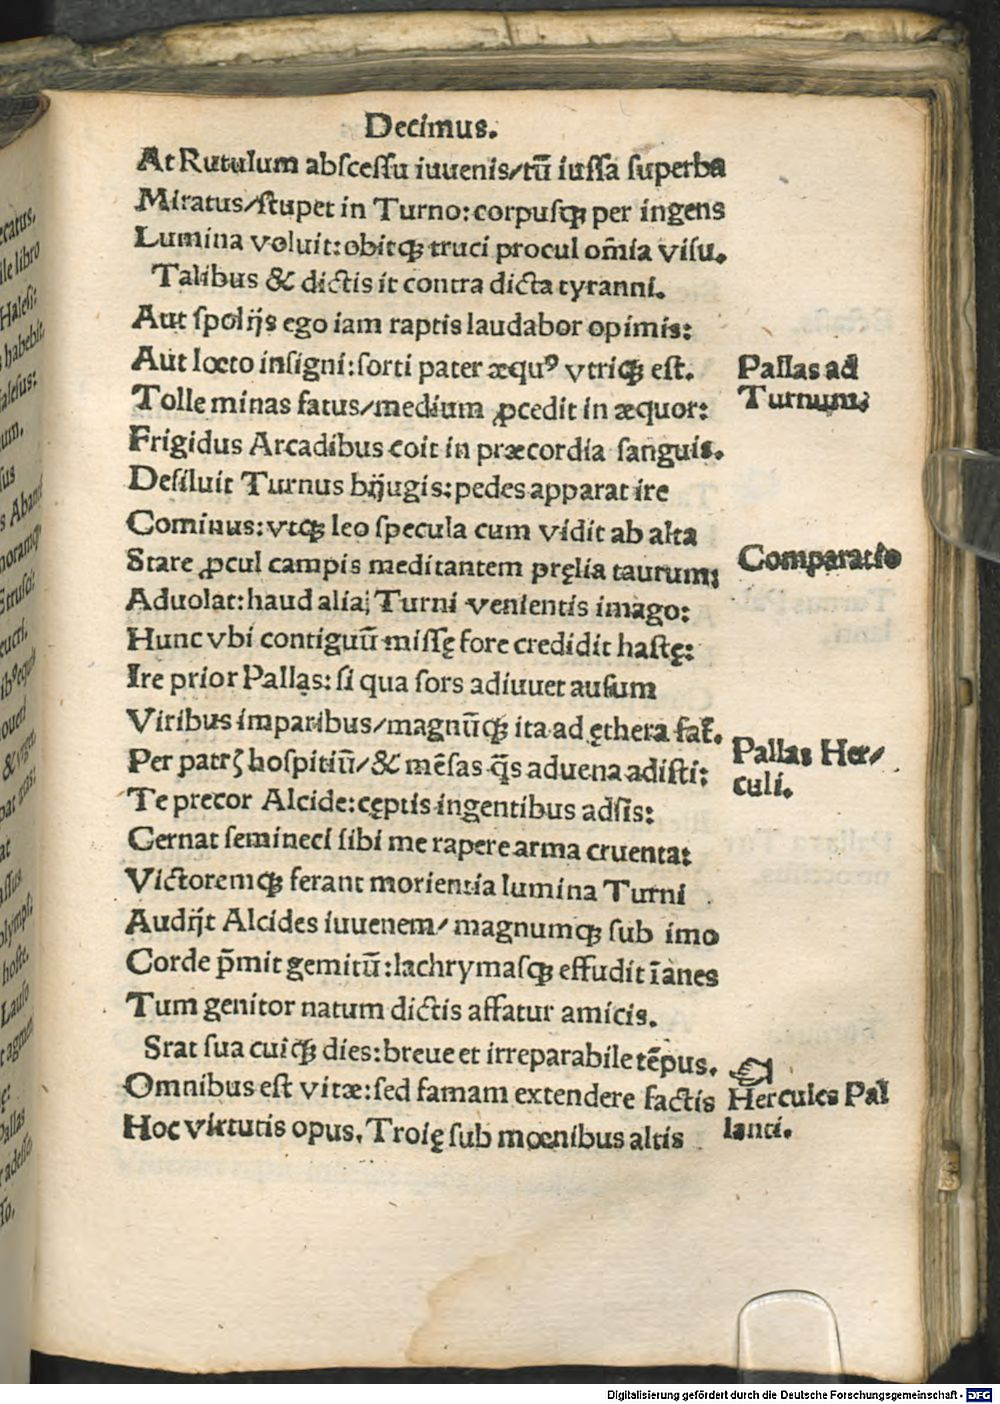 Decimus.
At Rutulum abſceſſu iuuenis/tū iuſſa ſuperba
Miratus/ſtupet in Turno:corpuſqꝫ per ingens
Lumina voluit:obitqꝫ truci procul om̄ia viſu.
Talibus & dictis it contra dicta tyranni.
Aut ſpolijs ego iam raptis laudabor opimis:
Aut lœto inſigni:ſorti pater æquꝰ vtriqꝫ eſt.
Pallas ad
Tolle minas fatus/medium ꝓcedit in æquor:
Turnum;
Frigidus Arcadibus coit in præcordia ſanguis.
Deſiluit Turnus bijugis:pedes apparat ire
Cominus:vtqꝫ leo ſpecula cum vidit ab alta
Comparatio
Stare ꝓcul campis meditantem pręlia taurum;
Aduolat:haud alia; Turni venientis imago:
Hunc vbi contiguū miſſę fore credidit haſtę:
Ire prior Pallas: ſi qua ſors adiuuet auſum
Viribus imparibus/magnūqꝫ ita ad ęthera fat̄.
Pallas Her/
Per patrꝫ hoſpitiū/& mēſas q̄s aduena adiſti:
culi.
Te precor Alcide:cęptis ingentibus adſis:
Cernat ſemineci ſibi me rapere arma cruenta:
Victoremqꝫ ferant morientia lumina Turni
Audijt Alcides iuuenem/ magnumqꝫ ſub imo
Corde p̄mit gemitū:lachrymaſqꝫ effudit īanes
Tum genitor natum dictis affatur amicis.
Srat ſua cuiqꝫ dies:breue et irreparabile tēpus.
Omnibus eſt vitæ:ſed famam extendere factis
Hercules Pal
Hoc virtutis opus. Troię ſub mœnibus altis
lanti.
Digitalisierung gefördert durch die Deutsche Forschungsgemeinschaft - DFG